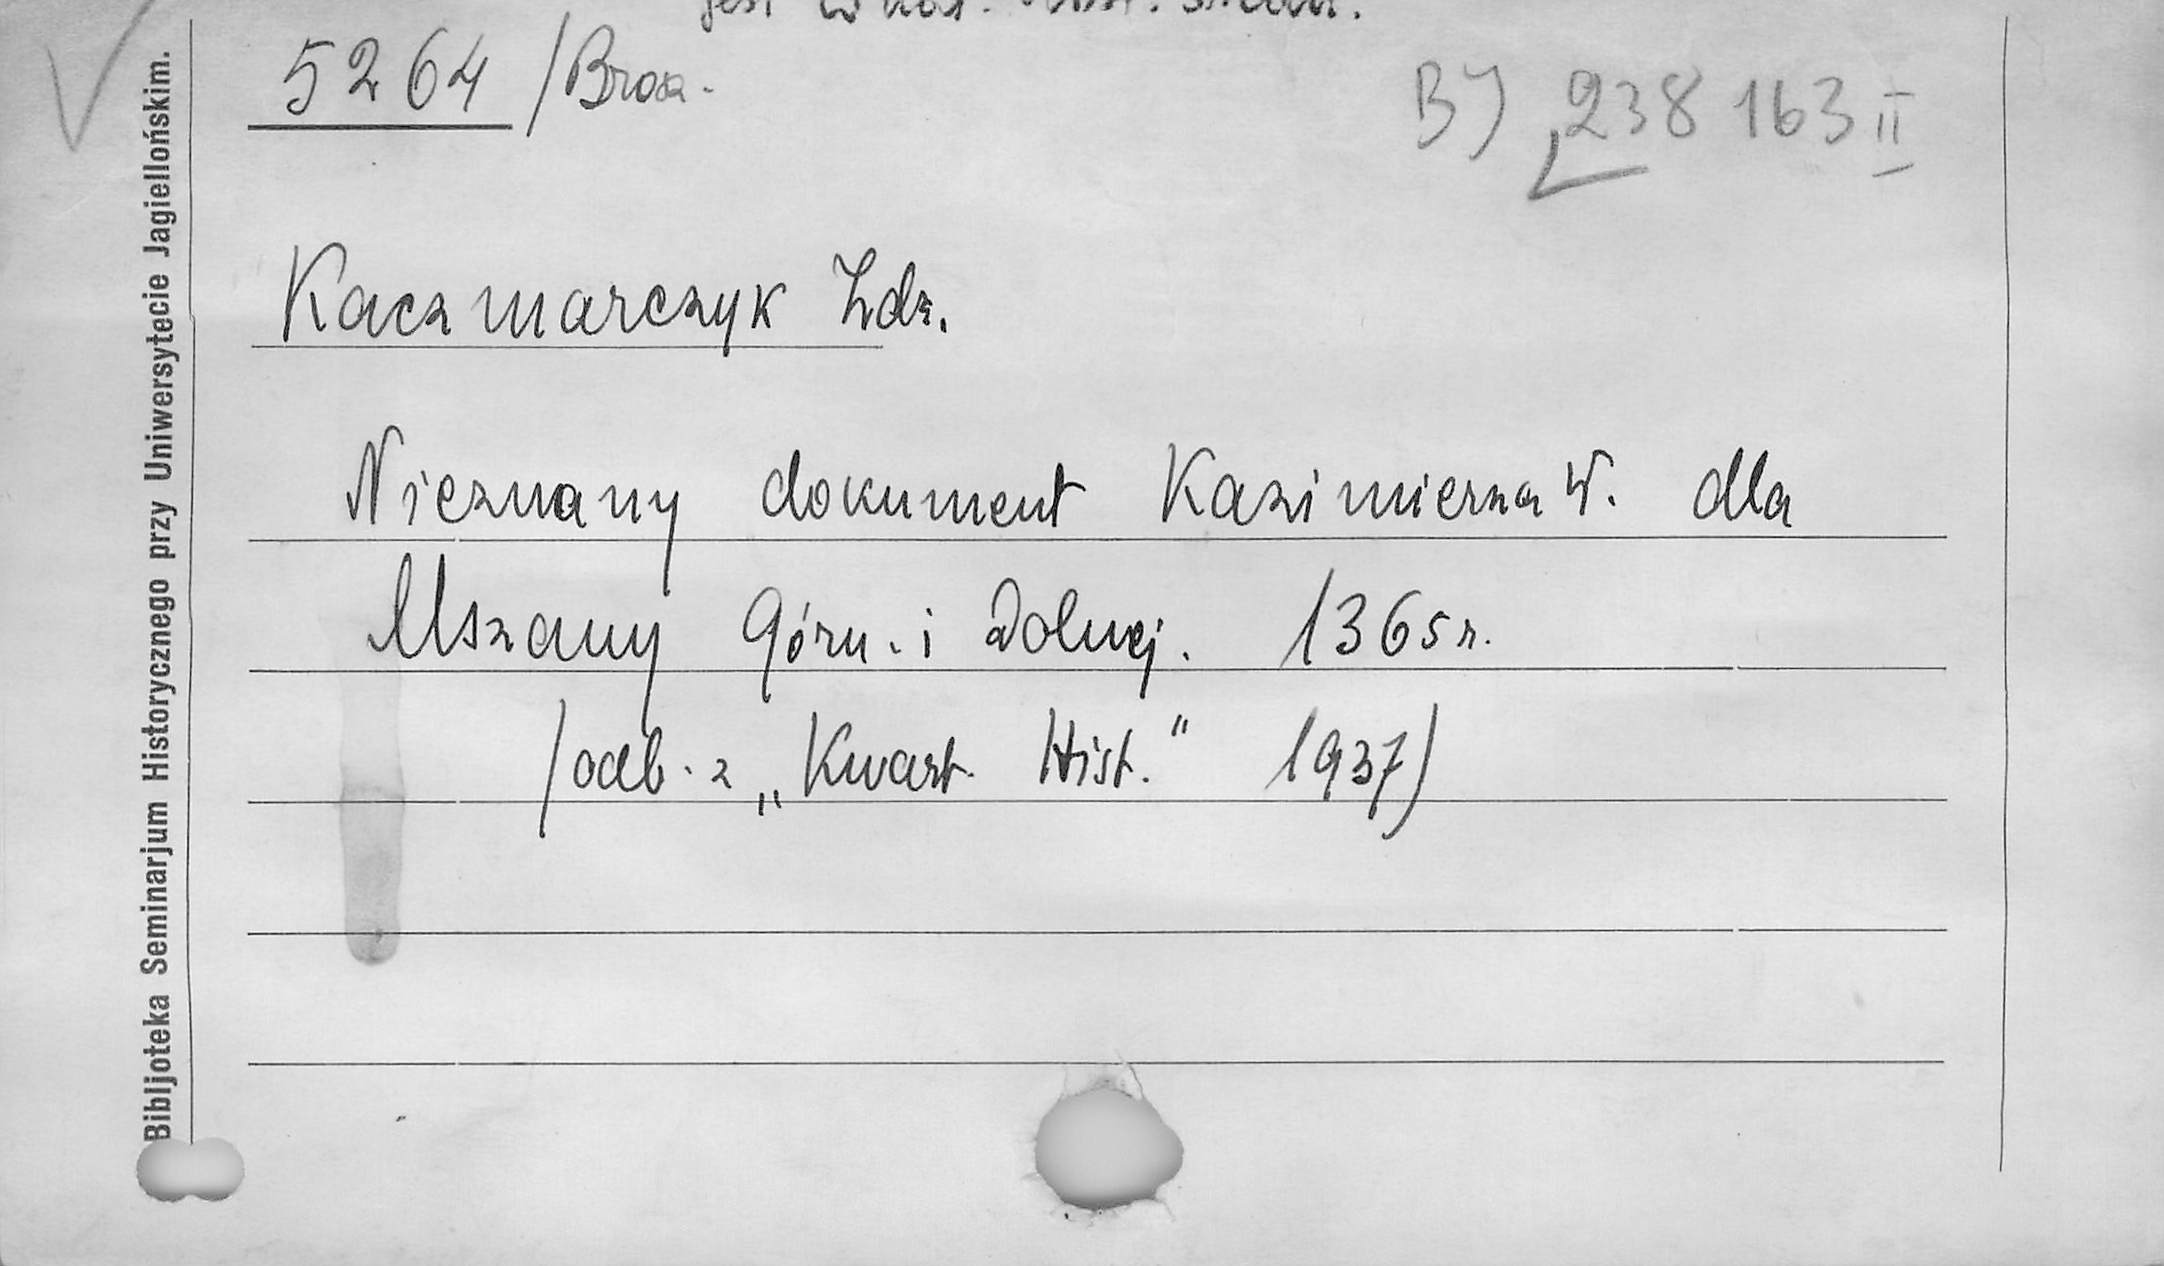 5264 /Brosz.
BJ 238 163 II
Kaczmarczyk Zdz.
Nieznany dokument Kazimierza W. dla
Mszany Górn. i Dolnej. 1365 r.
/odb. z „Kwart. Hist.” 1937/
Bibljoteka Seminarjum Historycznego przy Uniwersytecie Jagiellońskim.